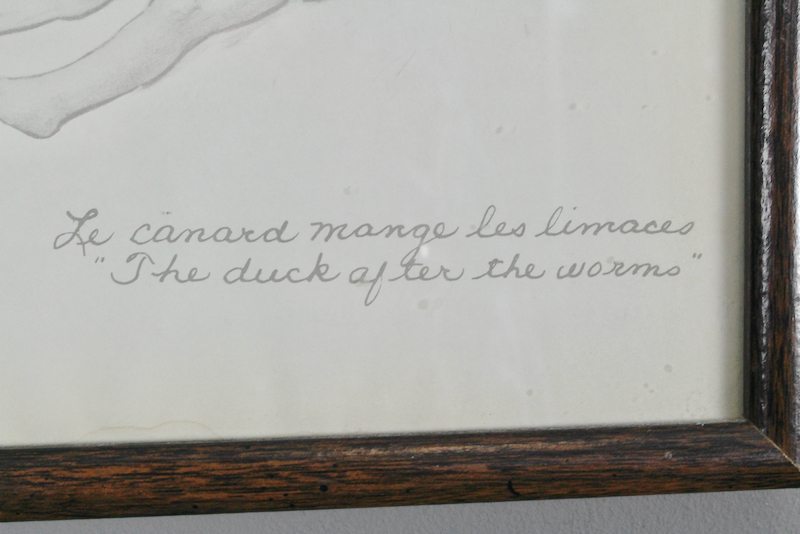 Le canard mange les limaces
"The duck after the worms"